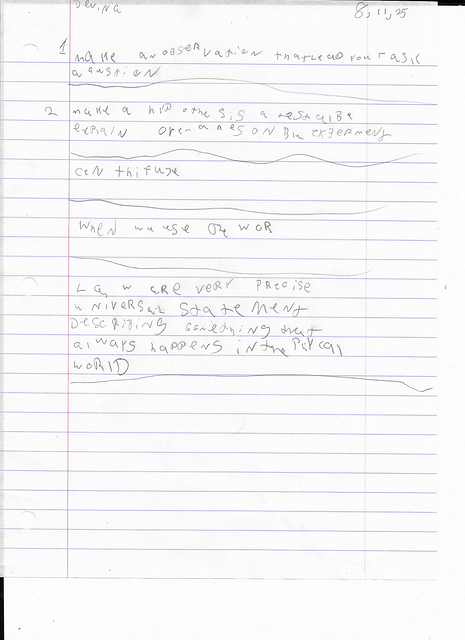 Devina
8, 11, 25
1 make an observation thatlead you t ask
a qustion
2 make a hip othe sis a testable
explain
cen thifuxe
When we use the wor
La w are very precise
universal statement
Describing something that
always happens in the Pih cal
worlD